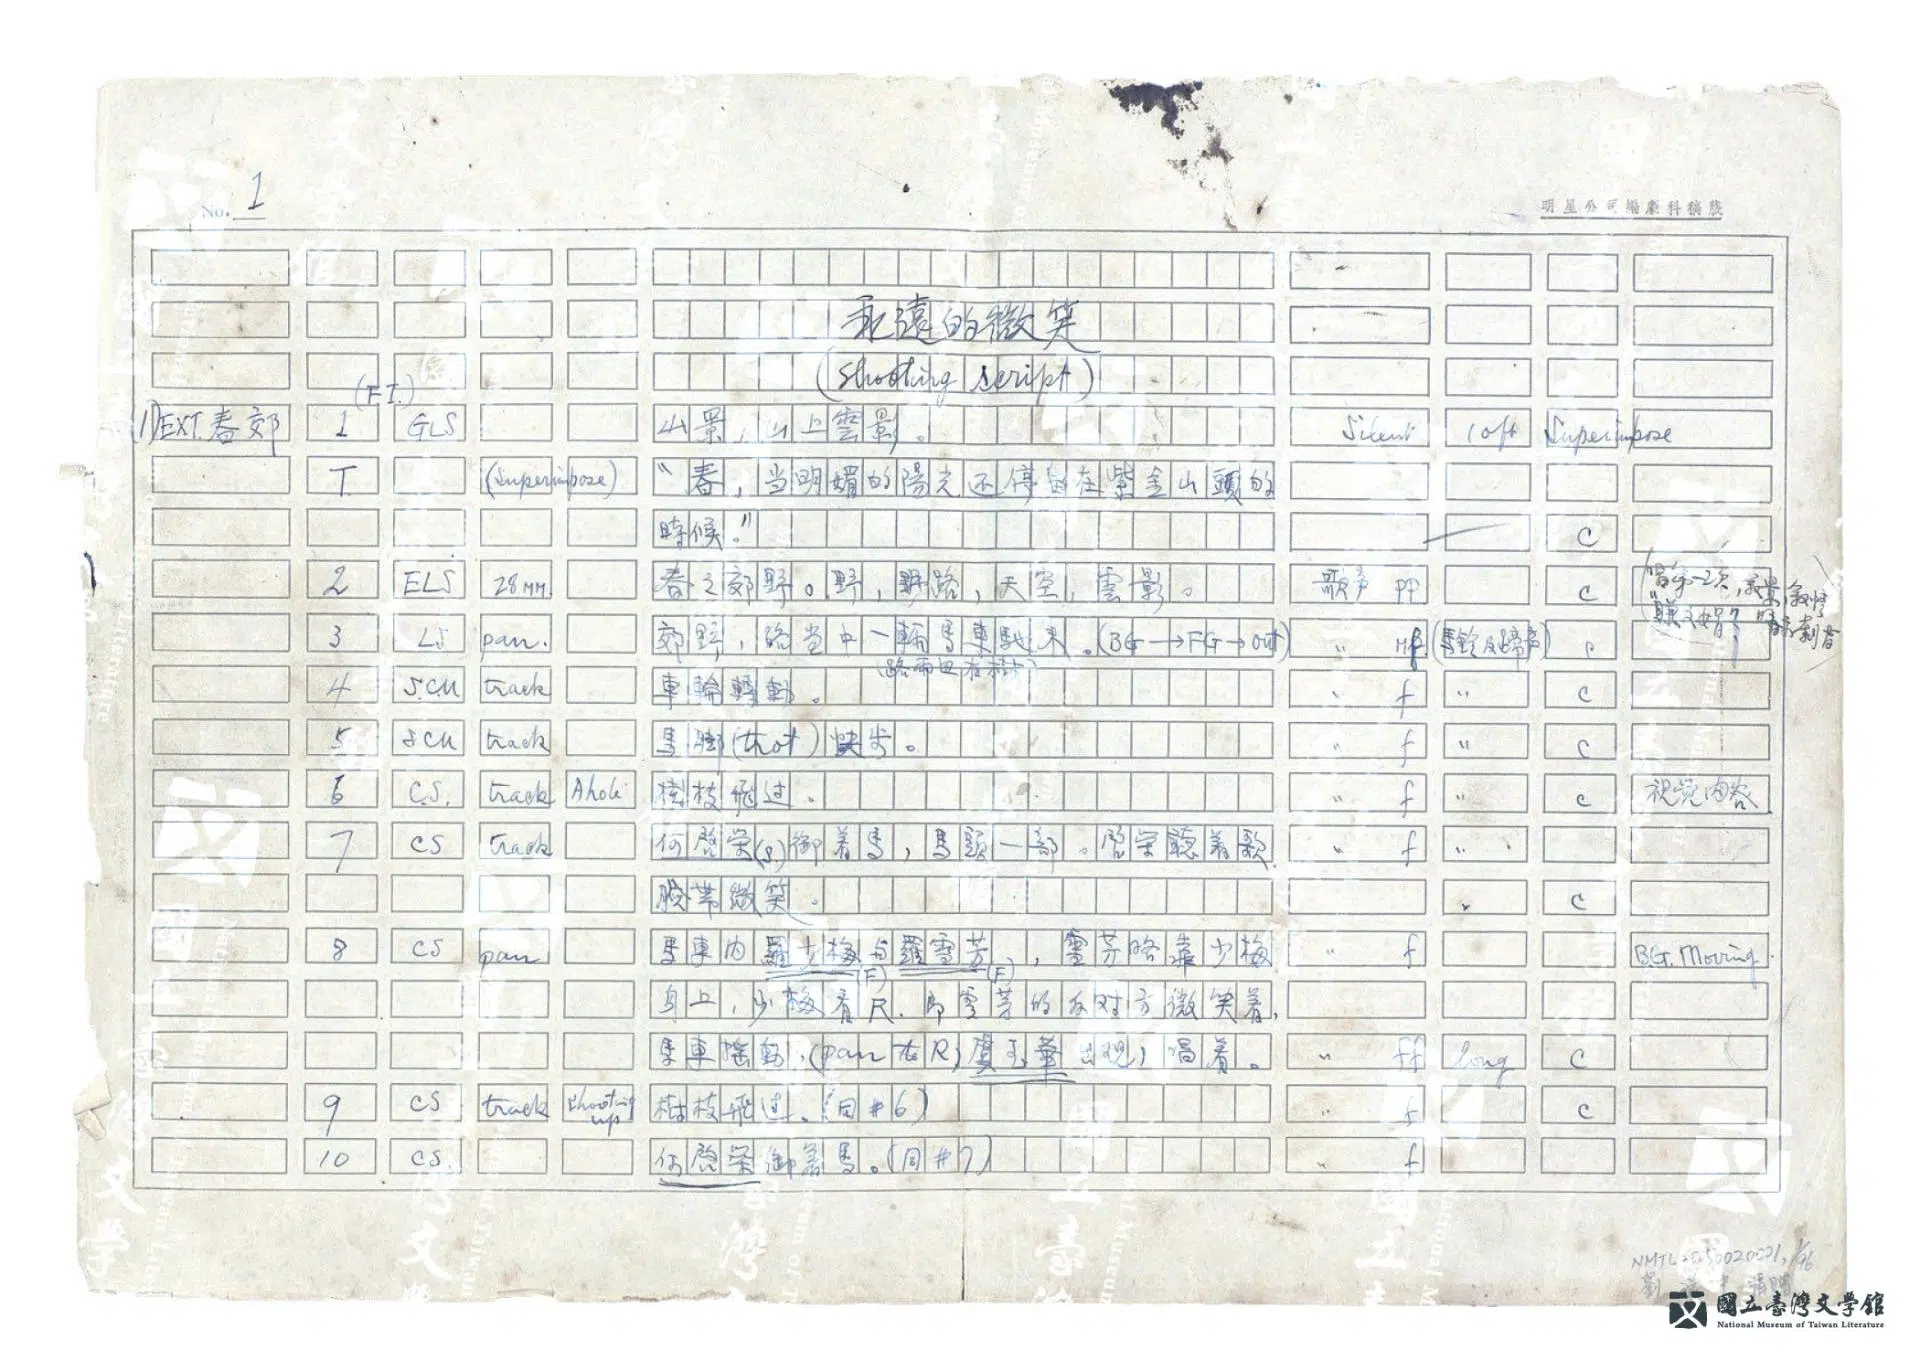 No. 1
明星公司編劇科稿牋
永遠的微笑
(Shooting Script)
(F.I.)
1) EXT. 春郊 1 GLS 山景，山上雲影。 Silent 10ft Superimpose
T. (Superimpose) “春，当明媚的陽光还停留在紫金山頭的
時候。” C
2 ELS 28MM. 春之郊野。野，野路，天空，雲影。 歌声 PP C
3 LS pan. 郊野，路当中一輛馬車馳來。(BG→FG→out) " MF. (馬鈴及蹄声) C
4 S.CU track 車輪轉動。 " f " C
5 SCU track 馬脚(trot)快步。 " f " C
6 C.S. track 樹枝飛过。 " f " C 視覚内容
7 CS track 何啓榮(S)御着馬，馬頭一部。啓榮聽着歌 " f "
臉帶微笑。 " C
8 CS pan 馬車内羅少梅与羅雪芳，雪芳略靠少梅 " f B.G. Moving.
(F) (F)
身上，少梅看尺，即雪芳的反対方微笑着，
馬車摇動，(pan to R) 虞玉華出現，唱着。 " ff long C
9 CS track shooting up 樹枝飛过。(同#6) " f C
10 CS. 何啓榮御着馬。(同#7) " f
國立臺灣文學館
National Museum of Taiwan Literature